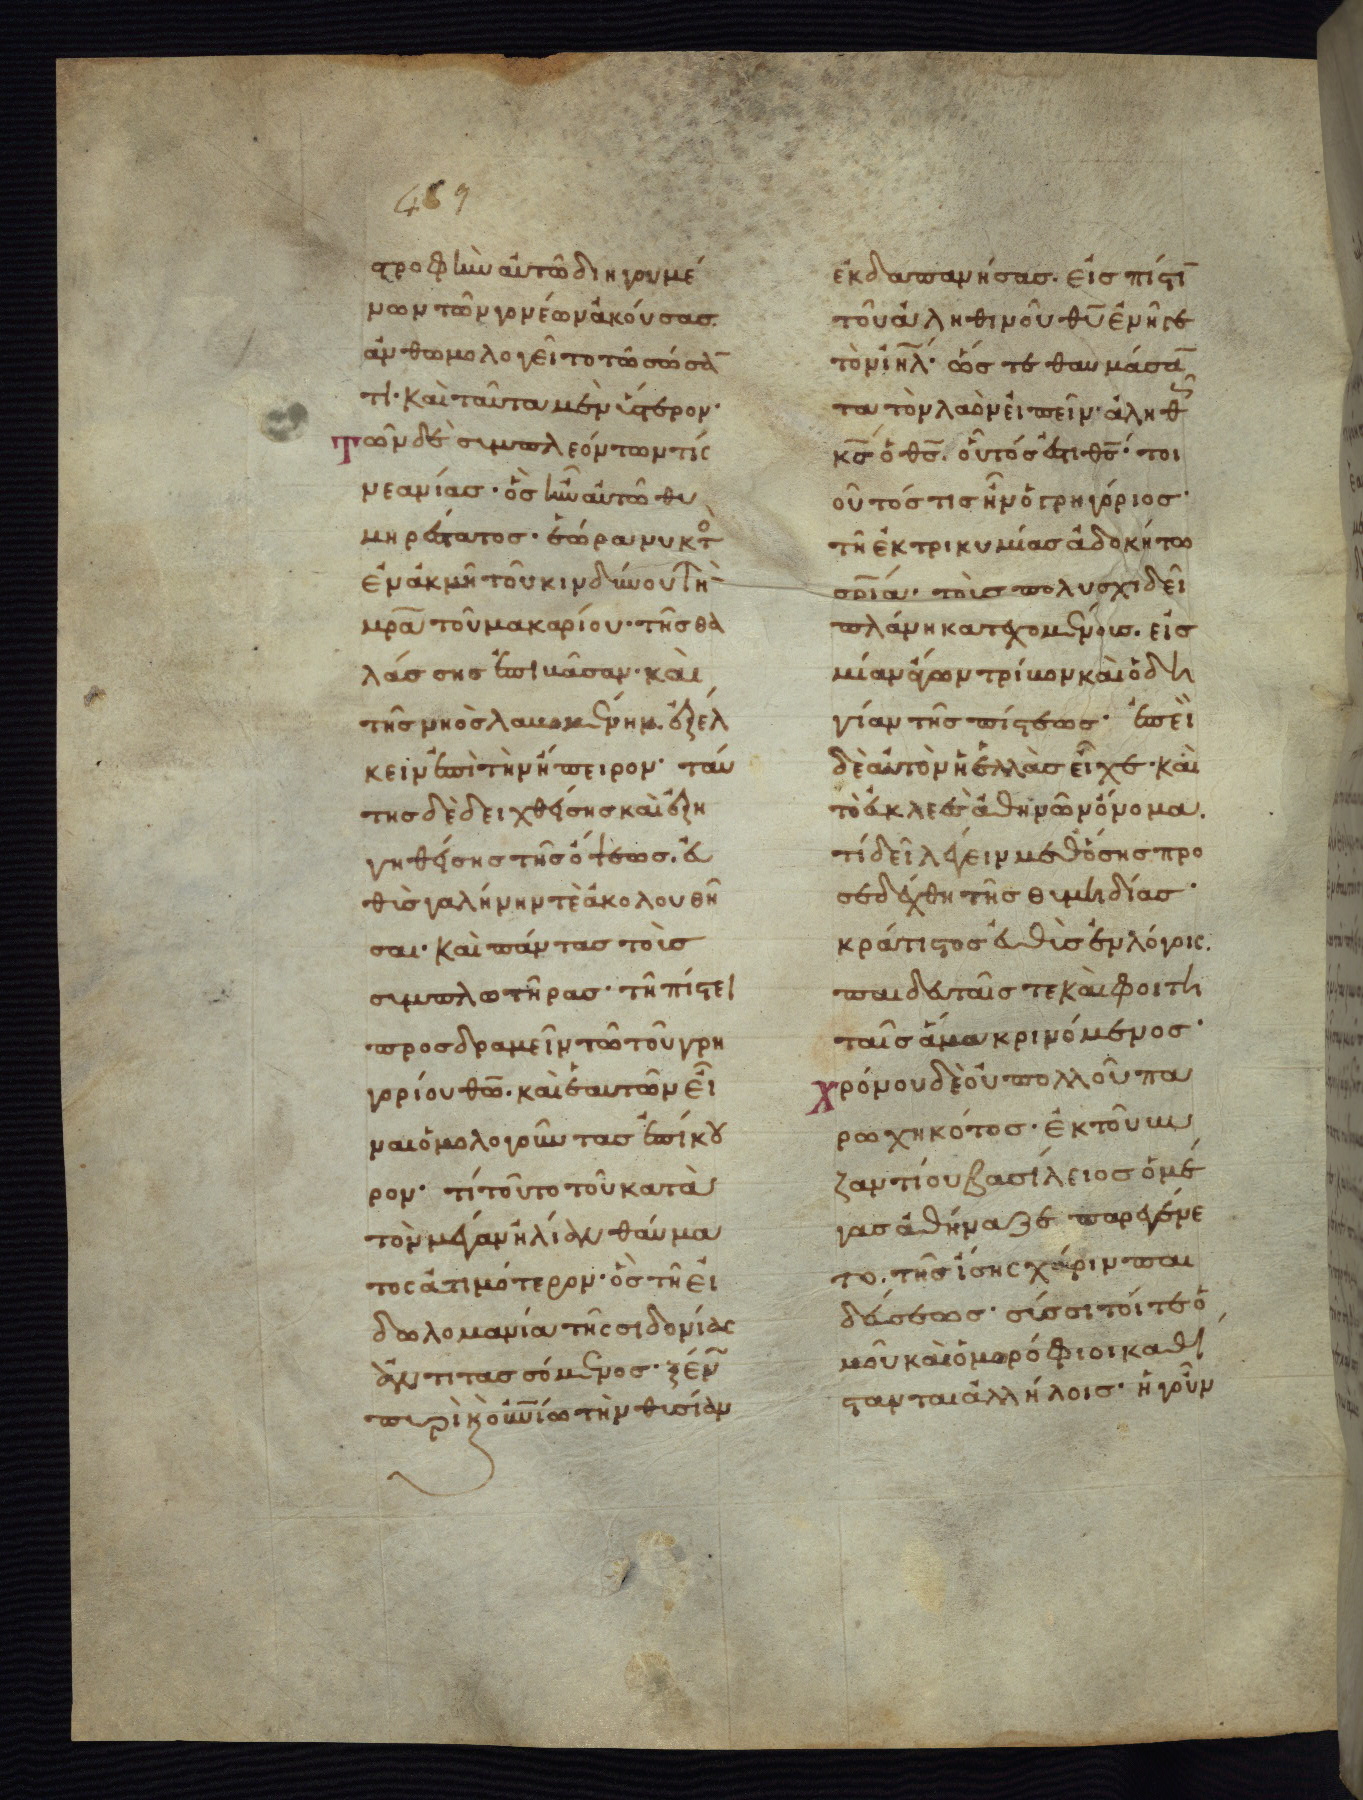 469
στροφὴν αὐτῶ διηγουμέ
νων τῶν γονέων ἀκούσας.
ἀνθωμολογεῖτο τῶ σώσα̅
τι· καὶ ταῦτα μὲν ὕστερον·
Τῶν δὲ συμπλεόντων τίς
νεανίας· ὃς ἦν αὐτῶ θυ
μηρέστατος· ἑώρα νυκτὸ
ἐν ἀκμῆ τοῦ κινδύνου τὴ
μρ̅α τοῦ μακαρίου· τῆς θα
λάσσης ἐπιβᾶσαν· καὶ
τῆς νηὸς λαβομένην. ἐξέλ
κειν ἐπὶ τὴν ἤπειρον· ταύ
της δὲ δειχθείσης καὶ ἐξη
γηθείσης τῆς ὄψεως. εὐ
θὺς γαλήνην τὲ ἀκολουθῆ
σαι· καὶ πάντας τοὺς
συμπλωτῆρας· τῆ πίστει
προσδραμεῖν τῶ τοῦ γρη
γορίου θω̅· καὶ ἑαυτῶν εἶ
ναι ὁμολογοῦντας ἐπίκου
ρον· τί τοῦτο τοῦ κατὰ
τὸν μέγαν ἠλίαν θαύμα
τος ἀτιμότερον· ὃς τῆ εἰ
δωλομανία τῆς σιδονίας
ἀντιτασσόμενος· ξέν
πυρὶ κοινίω τὴν θυσίαν
ἐκδαπανήσας. εἰς πίστι̅
τοῦ ἀληθινοῦ θυ̅ ἐνῆγε
τὸν ιη̅λ· ὥς τε θαυμάσα̅
τα τὸν λαὸν εἰπεῖν· ἀληθῶς
κς̅ ὁ θς̅. οὗτός ἐστι θς̅· τοι
οῦτός τις ἦν ὁ γρηγόριος·
τῆ ἐκ τρικυμίας ἀδοκήτω
σρ̅ία· τοὺς πολυσχιδεῖ
πλάνη κατεχομένους. εἰς
μίαν ἄγων τρίβον καὶ ὁδη
γίαν τῆς πίστεως· ἐπεὶ
δὲ αὐτὸν ἡ ἑλλὰς εἶχε· καὶ
τὸ εὐκλεὲς ἀθηνῶν ὄνομα.
τί δεῖ λέγειν μεθ' ὅσης προ
σεδέχθη τῆς θυμηδίας·
κράτιστος εὐθὺς ἐν λόγοις.
παιδευταῖς τε καὶ φοιτη
ταῖς ἅμα κρινόμενος·
Χρόνου δὲ οὐ πολλοῦ πα
ρωχηκότος· ἐκ τοῦ βυ
ζαντίου βασίλειος ὁ μέ
γας ἀθήναζε παρεγένε
το. τῆς ἴσης χάριν παι
δεύσεως· σύσσιτοί τε ὁ
μοῦ καὶ ὁμορόφιοι καθί
στανται ἀλλήλοις· ἡ γοῦν